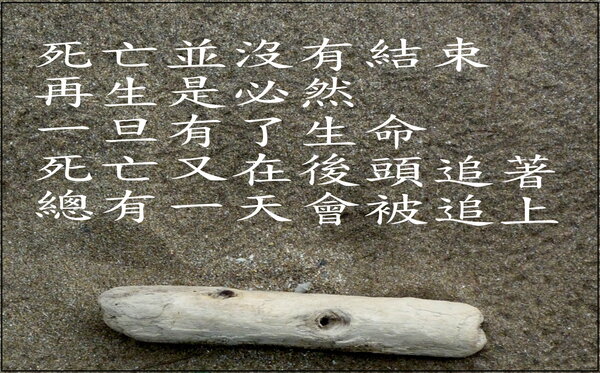 死亡並沒有結束
再生是必然
一旦有了生命
死亡又在後頭追著
總有一天會被追上